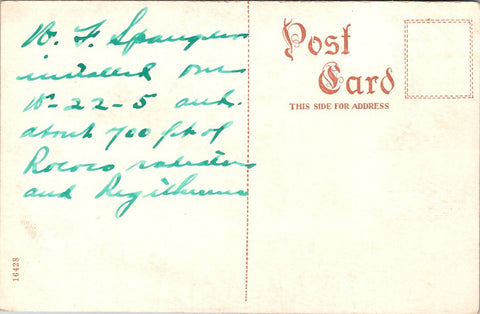 W. F. Spangler
installed one
W-22-5 and.
about 700 ft of
Rococo radiators
and Regitherms
Post
Card
THIS SIDE FOR ADDRESS
16428